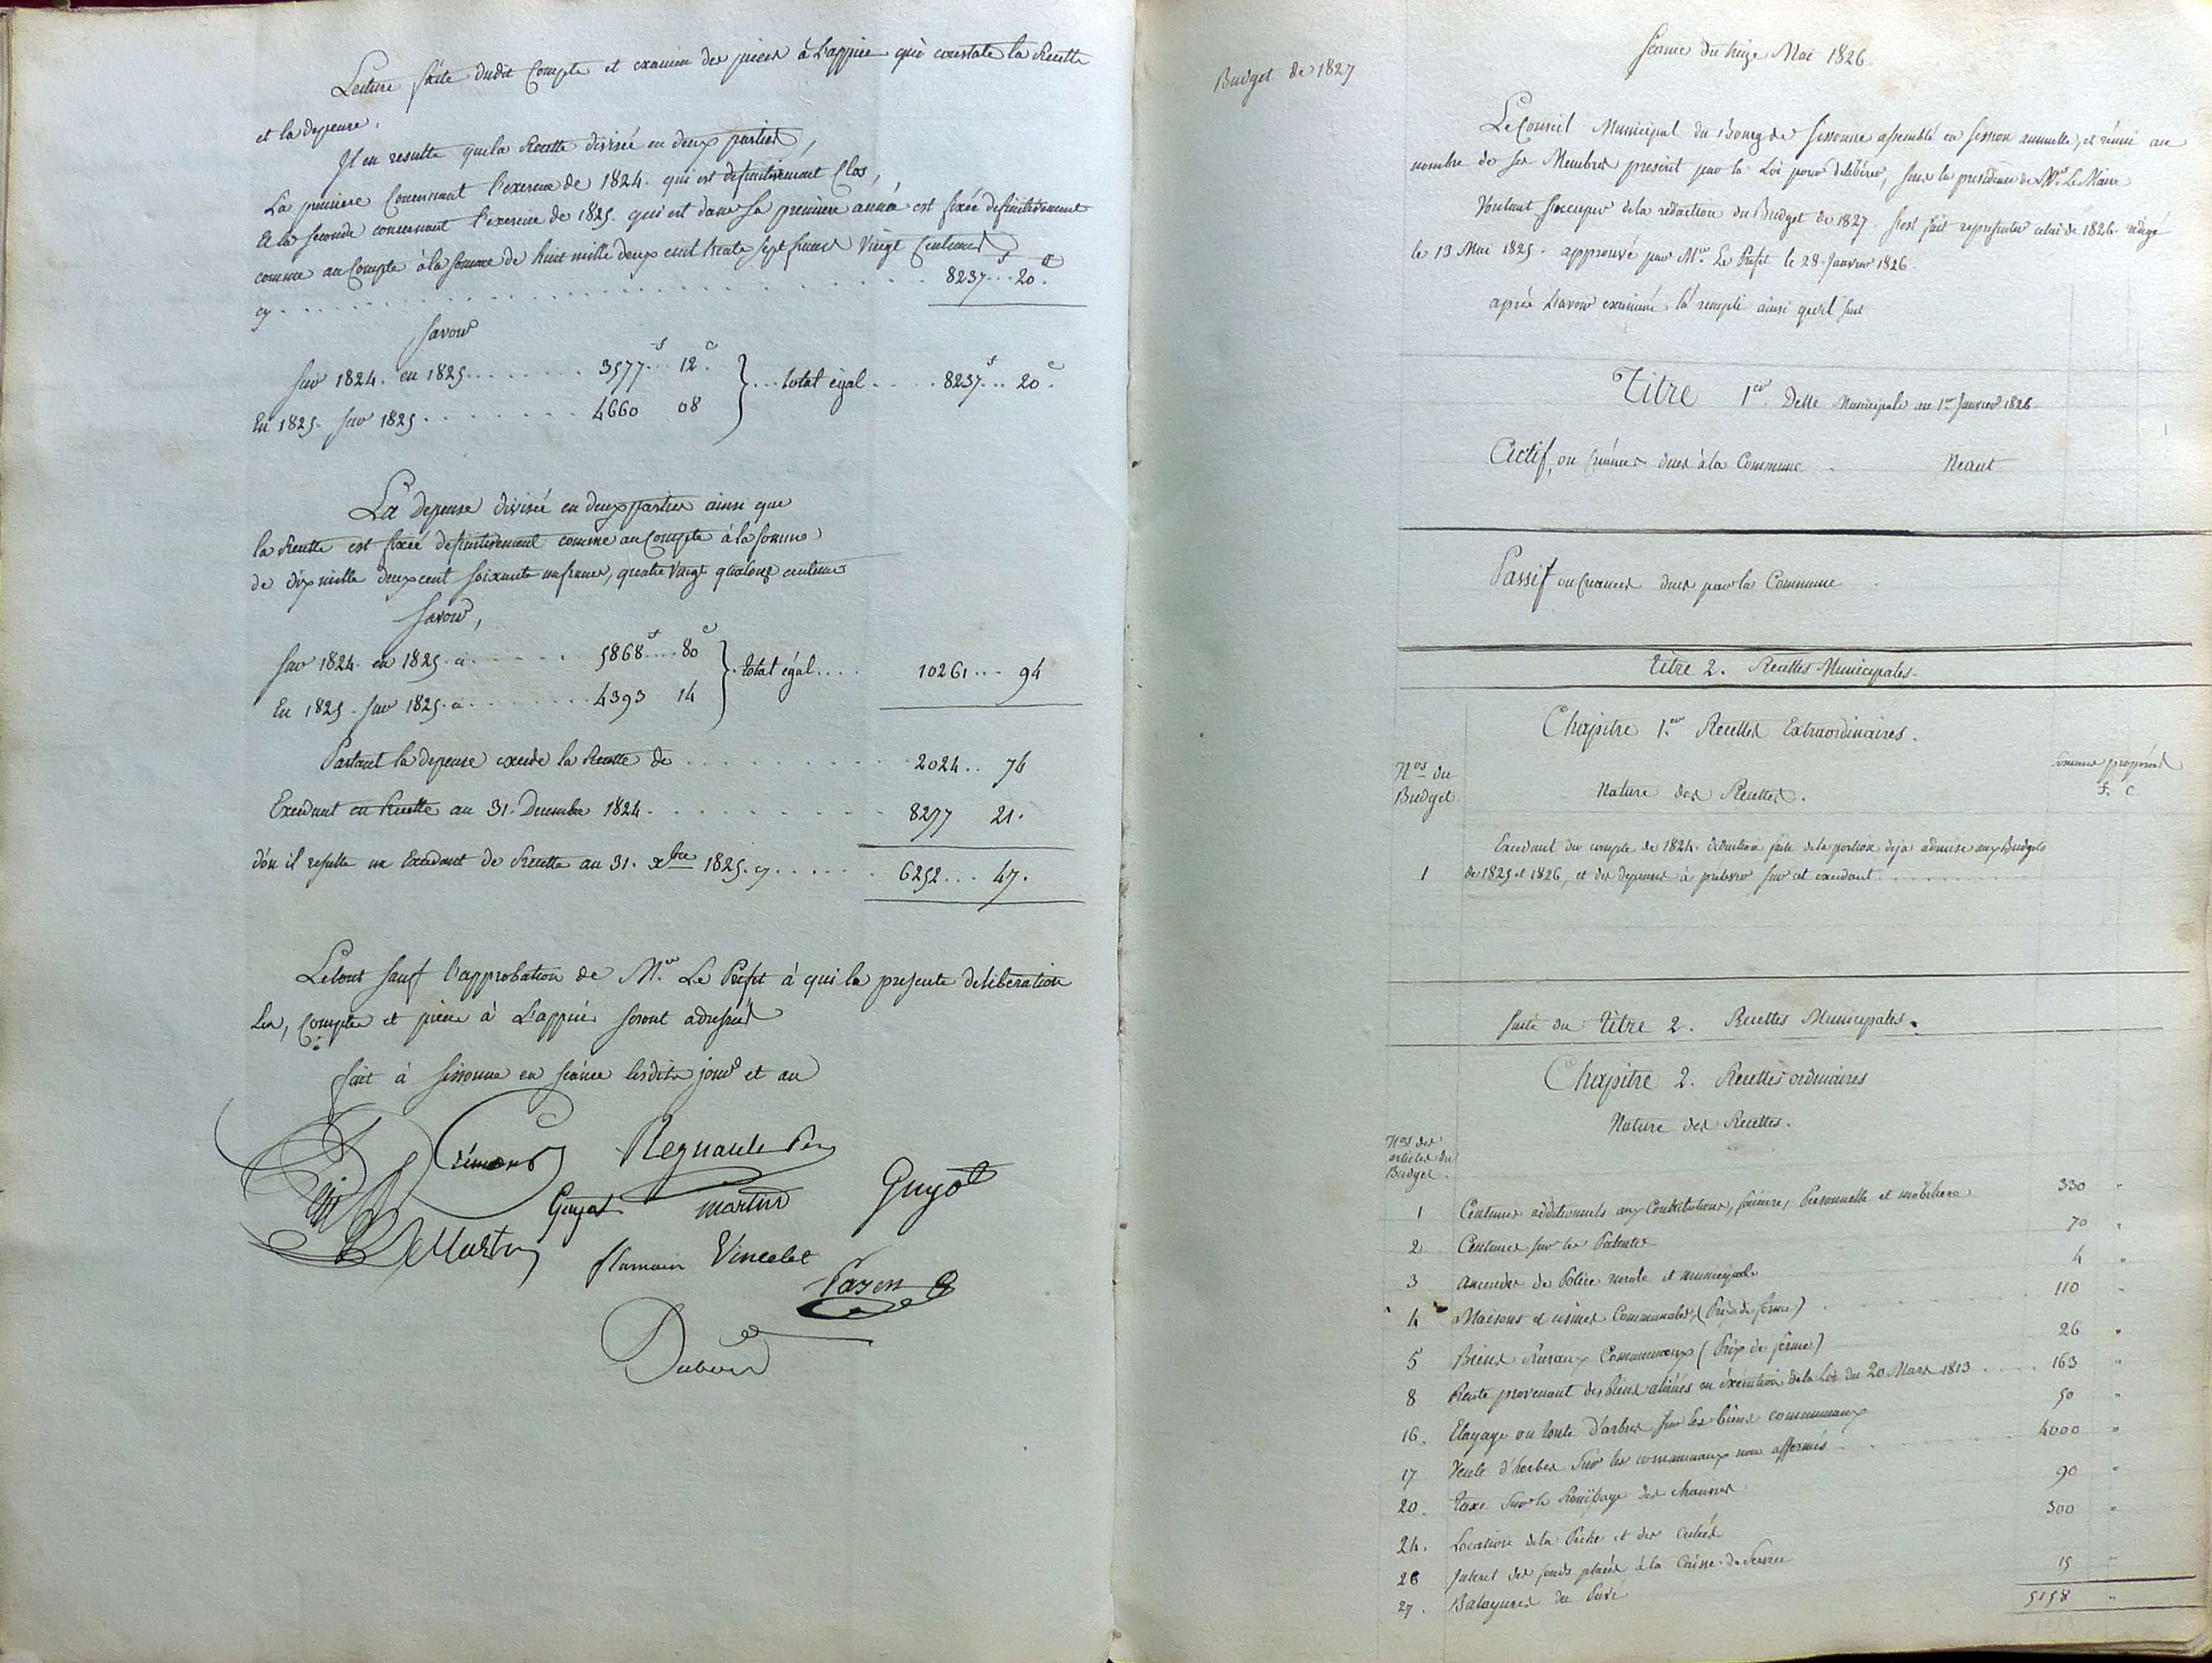 Lecture faite dudit Compte et examen des pieces à L'appuie qui constate la Recette
et la depense.
Il en resulte que la Recette divisée en deux parties,
La premiere Concernant l'exercice de 1824. qui est definitivement Clos,
Et la seconde concernant l'exercice de 1825. qui est dans sa premiere année est fixée definitivement
comme au Compte à la somme de huit mille deux cent trente sept francs Vingt Centimes
cy . . . . . . . . . . 8237 f... 20 c.
Savoir
Sur 1824. en 1825 . . . . . . . 3577 f... 12 c. } ... total égal . . . . 8237 f... 20 c.
En 1825. sur 1825 . . . . . . . 4660 08
La depense divisée en deux parties ainsi que
la Recette est fixée definitivement comme au Compte à la somme
de dix mille deux cent soixante un francs, quatre Vingt quatorze centimes
Savoir,
Sur 1824. en 1825. a . . . . . . 5868 f.... 80 c } . total égal . . . . 10261 ... 94
En 1825. sur 1825. a . . . . . . 4393 14
Partant la depense excede la Recette de . . . . . . . . . 2024 .. 74
Excedant en Recette au 31. Decembre 1824 . . . . . . . . . 8277 21.
d'ou il resulte un Excedant de Recette au 31. xbre 1825. cy . . . . . . 6252 ... 47.
Le tout sauf l'approbation de Mr. Le Prefet à qui la presente deliberation
Les, Comptes et pieces à L'appui seront adressés
fait à Sissonne en séance lesdits jour et an
Regnault
Guyot martin Guyot
DeMartin flamain Vincelet
Payen
Budget de 1827
Seance du treize Mai 1826.
Le Conseil Municipal du Bourg de Sissonne assemblé en session annuelle, et réuni au
nombre de ses Membres prescrit par la Loi pour délibérer, sous la presidence de Mr. Le Maire
Voulant s'occuper de la redaction du Budget de 1827. s'est fait representer celui de 1826. redigé
le 13 Mai 1825. approuvé par Mr. Le Prefet le 28. Janvier 1826.
après L'avoir examiné l'a rempli ainsi qu'il suit
Titre 1er. Dette Municipale au 1er Janvier 1826.
Actif, ou Créances dues à la Commune . Neant
Passif ou Créances dues par la Commune .
Titre 2. Recettes Municipales.
Chapitre 1.er Recettes Extraordinaires.
Nos du
Budget
Nature des Recettes.
Sommes proposées
f. c
Excedant du compte de 1824. deduction faite de la portion deja admise aux Budgets
1 de 1825 et 1826, et des depenses à prelever sur cet excedant . . . . . . . . .
Suite du Titre 2. Recettes Municipales.
Chapitre 2. Recettes ordinaires
Nature des Recettes.
Nos des
articles du
Budget.
1 Centimes additionnels aux Contributions, fonciere, Personnelle et mobiliere 330 "
2 Centimes sur les Patentes 70 "
3 amendes de Police rurale et municipale 4 "
4 Maisons et usines Communales, (Prix de ferme) . . . . . . 110 "
5 Biens Ruraux Communaux (Prix de ferme) 26 "
8 Rente provenant des biens aliénés en éxecution de la Loi du 20. Mars 1813 . . . . 163 "
16. Elagage ou tonte d'arbres sur les biens communaux 50 "
17 Vente d'herbes Sur les communaux non affermés . . . . . . 4000 "
20. Taxe Sur le Rouissage des chanvres 90 "
24. Location de la Pêche et des 300 "
26 Interet des fonds placés à la Caisse de Service
27. Balayures du Pavé 15 "
5158 "